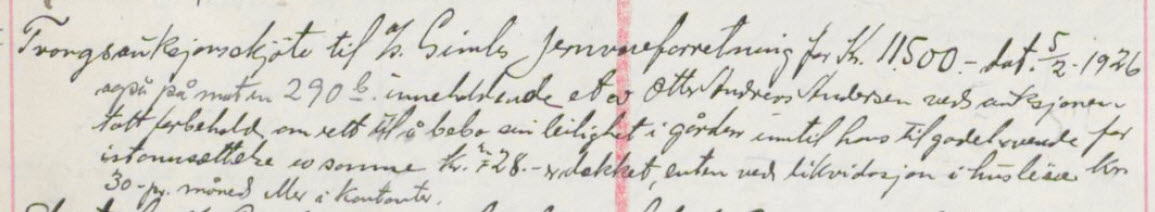 Tvangsauksjonsskjøte til A/S. Gimles Jernvareforretning for Kr. 11.500.- dat. 5/2.-1926
også på matr.n 290 b. inneholdende et av Otto Andreas Andersen ved auksjonen
tatt forbehold om rett til å bebo sin leilighet i gården inntil hans tilgodehavende for
istandsettelse av samme kr. 728.- er dekket, enten ved likvidasjon i husleie kr.
30- pr. måned eller i kontanter.